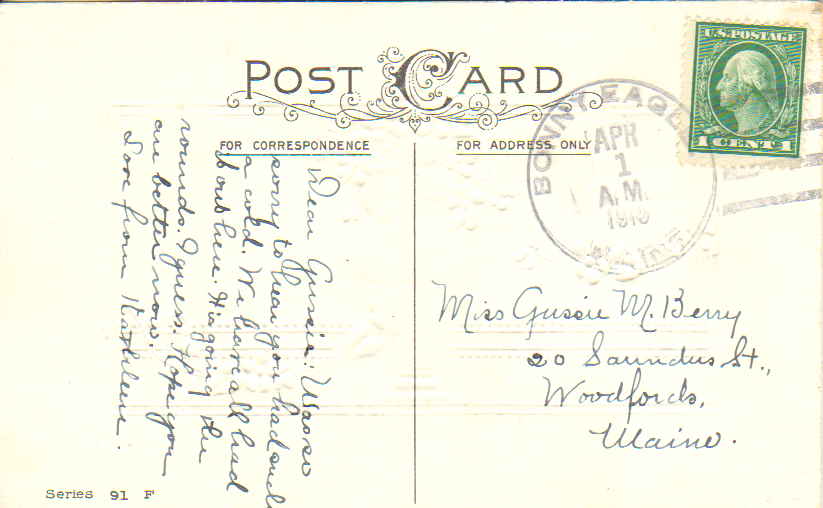 POST CARD
FOR CORRESPONDENCE
FOR ADDRESS ONLY
U.S. POSTAGE
BONNY EAGLE
APR
1
A.M.
MAINE
Dear Gussie: Was so
sorry to hear you had such
a cold. We have all had
here. It's going the
rounds, I guess. Hope you
are better now.
Love from Kathleen.
Miss Gussie M. Berry
20 Saunders St.,
Woodfords,
Maine.
Series 91 F